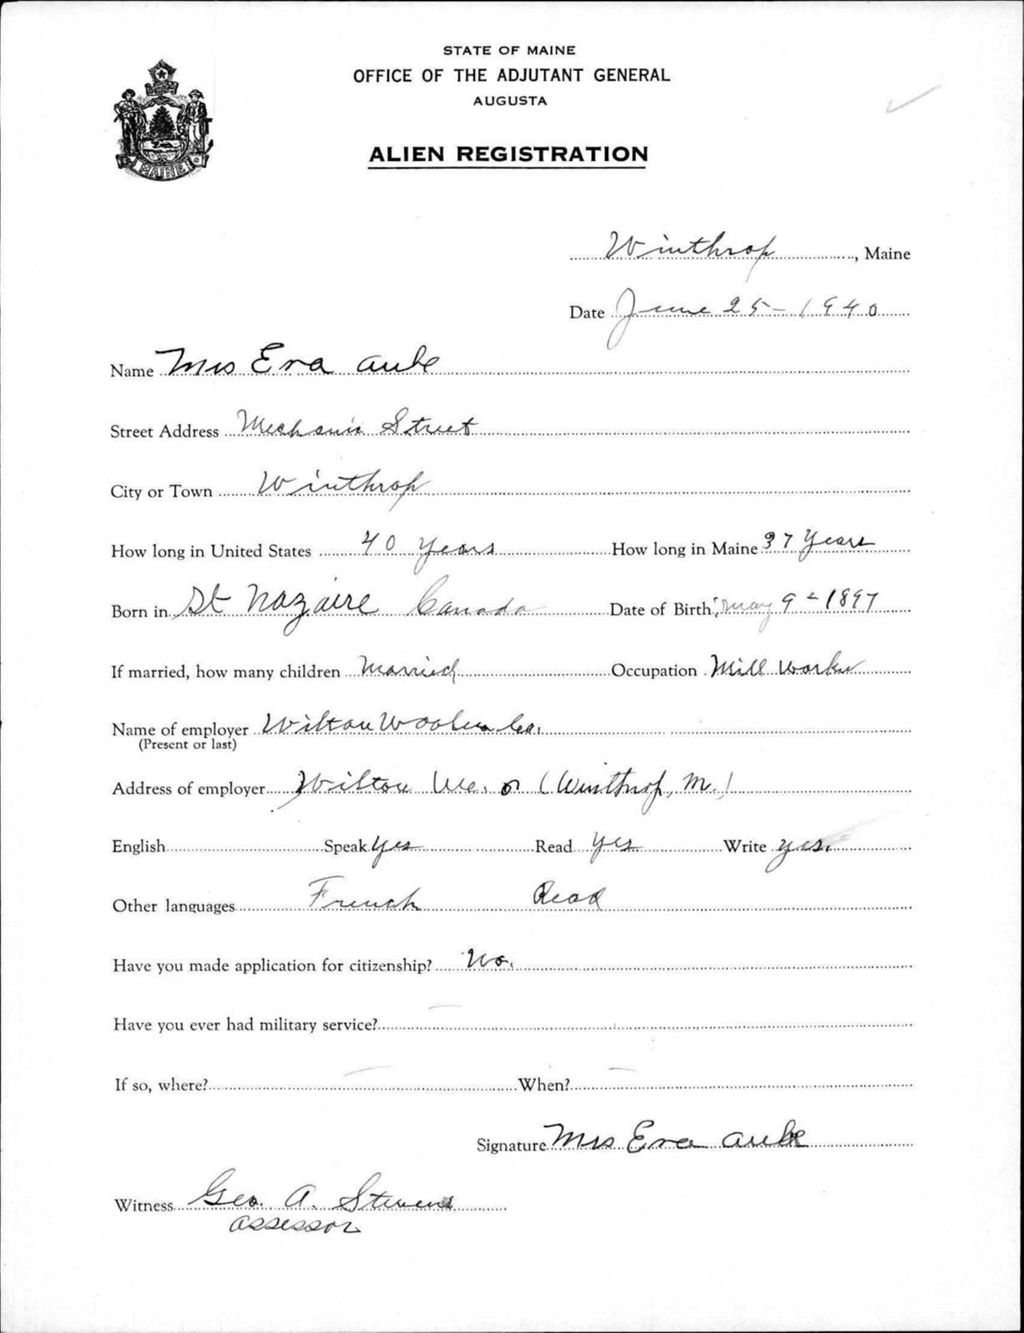 STATE OF MAINE
OFFICE OF THE ADJUTANT GENERAL
AUGUSTA
ALIEN REGISTRATION
MAINE
Winthrop, Maine
Date June 25-1940
Name Mrs Eva Aube
Street Address Mechanic Street
City or Town Winthrop
How long in United States 40 Years How long in Maine 37 Years
Born in St Nazaire Canada Date of Birth May 9-1897
If married, how many children Married Occupation Mill Worker
Name of employer Wilton Woolen Co.
(Present or last)
Address of employer Wilton Me. or (Winthrop, M.)
English Speak Yes Read Yes Write Yes.
Other languages French Read
Have you made application for citizenship? No.
Have you ever had military service? —
If so, where? — When? —
Signature Mrs Eva Aube
Witness Geo. A. Stevens
Assessor